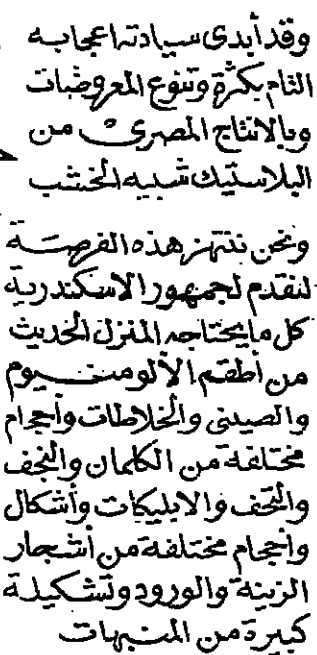 وقد أبدى سيادته اعجابه
التام بكثرة وتنوع المعروضات
وبالانتاج المصرى من
البلاستيك شبيه الخشب
ونحن ننتهز هذه الفرصة
لنقدم لجمهور الاسكندرية
كل ما يحتاجه المنزل الحديث
من أطقم الألومنيوم
والصينى والخلاطات وأحجام
مختلفة من الكلمان والنجف
والتحف والابليكات وأشكال
وأحجام مختلفة من أشجار
الزينة والورود وتشكيلة
كبيرة من المنبهات